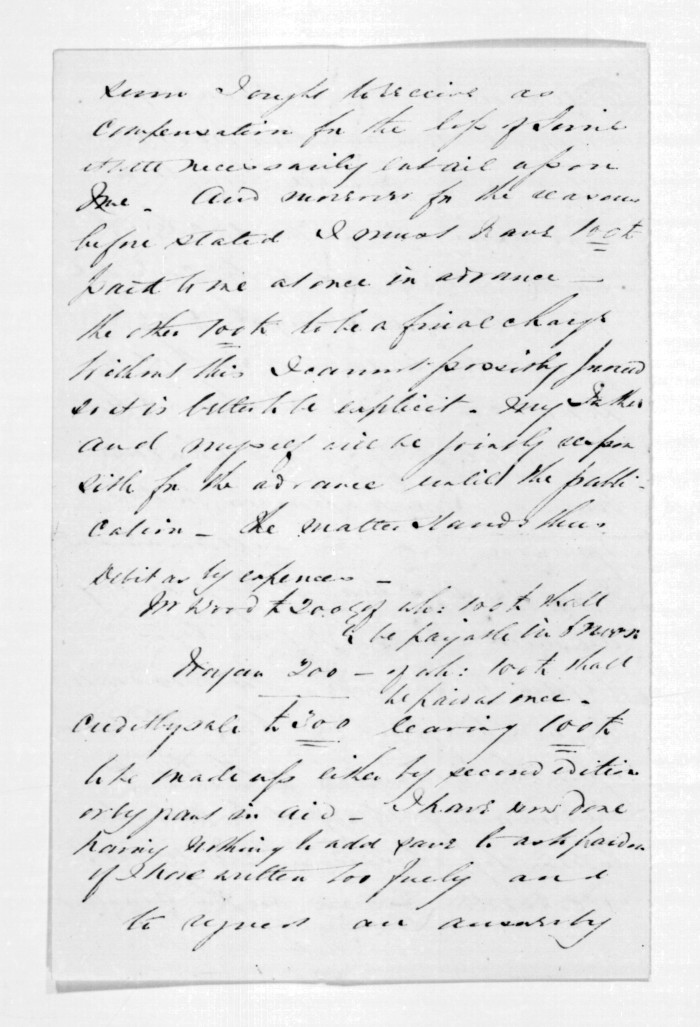 sum I ought to receive as
compensation for the loss of time
it will necessarily entail upon
me. And moreover for the reasons
before stated I must have 100£
paid to me at once in advance —
the other 100£ to be a final charge
Without this I cannot possibly proceed
so it is better to be explicit. My Father
and myself will be jointly respon
sible for the advance until the publi-
cation — The matter stands thus
Debit as by expences —
Mr Wood £ 200 of wh: 100£ shall
be payable in
200 — of wh: 100£ shall
be paid at once.
Credit by sale £ 300 leaving 100£
to be made up either by second edition
or by parts in aid — I have now done
having nothing to add save to ask pardon
if I have written too freely and
to request an answer by